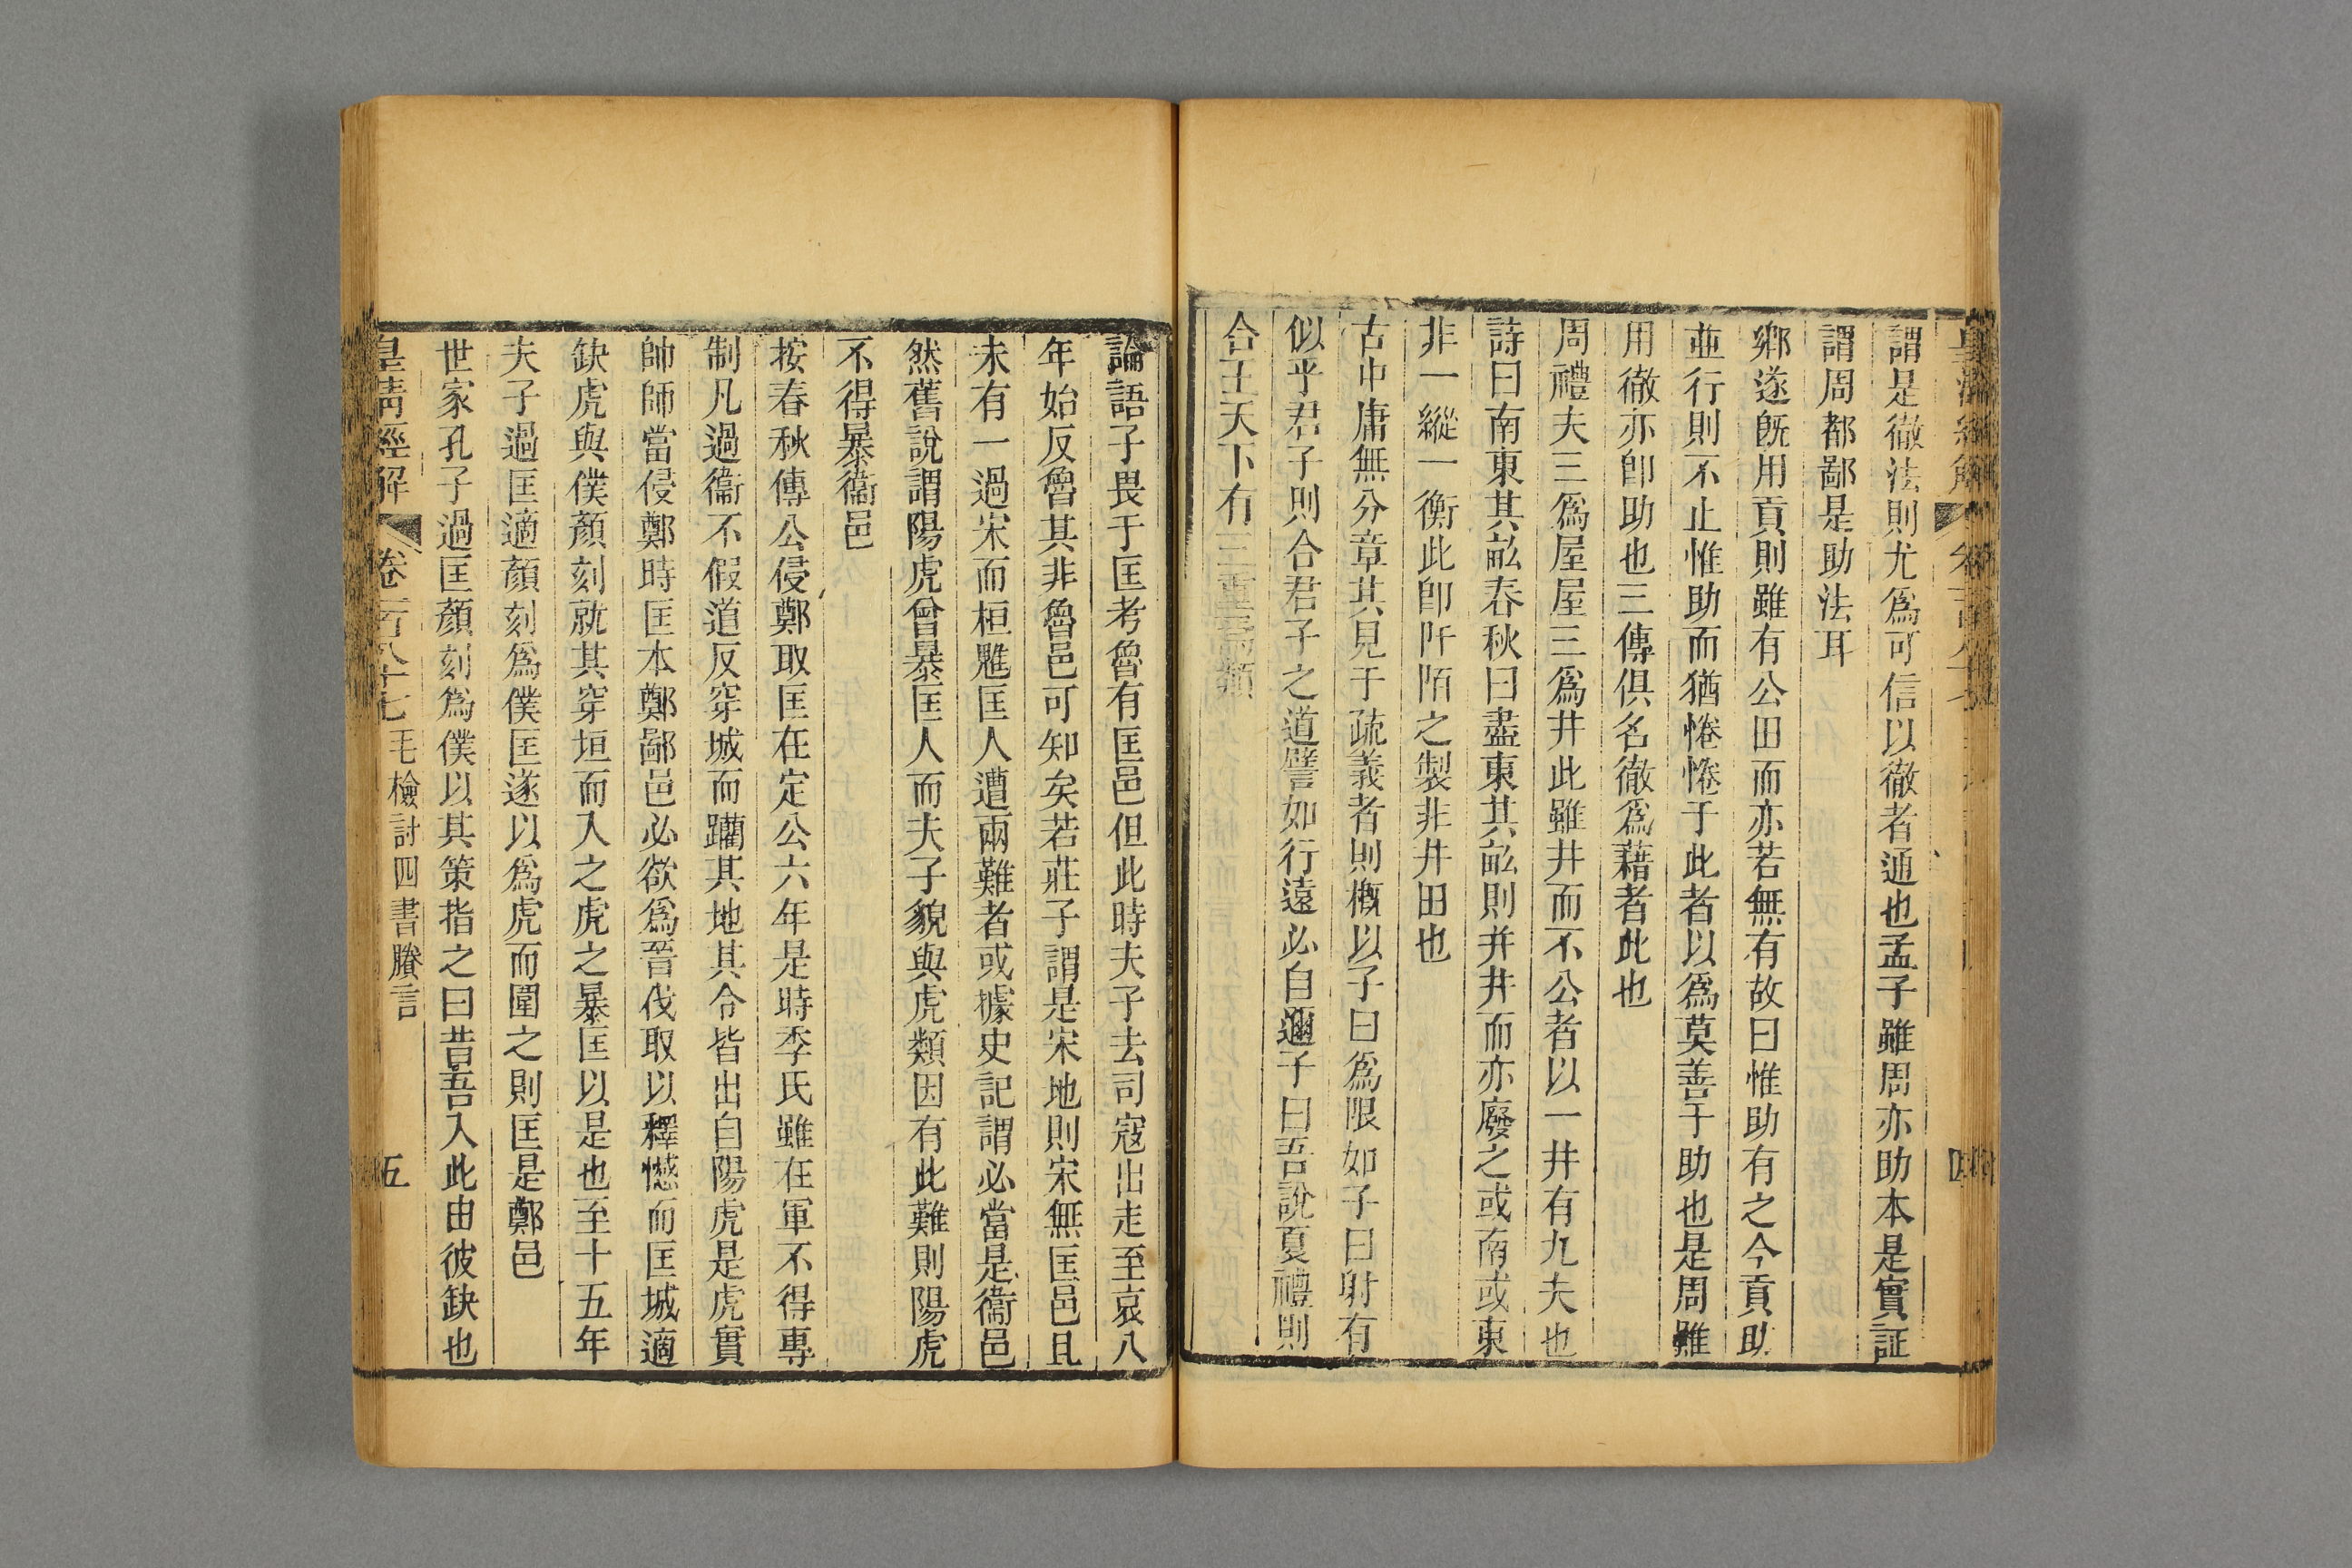 謂是徹法則尤爲可信以徹者通也孟子雖周亦助本是實証
謂周都鄙是助法耳
鄉遂旣用貢則雖有公田而亦若無有故曰惟助有之今貢助
並行則不止惟助而猶惓惓于此者以爲莫善于助也是周雖
用徹亦卽助也三傳俱名徹爲藉者此也
周禮夫三爲屋屋三爲井此雖井而不公者以一井有九夫也
詩曰南東其畝春秋曰盡東其畝則并井而亦廢之或南或東
非一縱一衡此卽阡陌之製非井田也
古中庸無分章其見于疏義者則槪以子曰爲限如子曰射有
似乎君子則合君子之道譬如行遠必自邇子曰吾說夏禮則
合王天下有三重焉類
論語子畏于匡考魯有匡邑但此時夫子去司寇出走至哀八
年始反魯其非魯邑可知矣若莊子謂是宋地則宋無匡邑且
未有一過宋而桓魋匡人遭兩難者或據史記謂必當是衞邑
然舊說謂陽虎曾暴匡人而夫子貌與虎類因有此難則陽虎
不得暴衞邑
按春秋傳公侵鄭取匡在定公六年是時季氏雖在軍不得專
制凡過衞不假道反穿城而躪其地其令皆出自陽虎是虎實
帥師當侵鄭時匡本鄭鄙邑必欲爲晉伐取以釋憾而匡城適
缺虎與僕顏刻就其穿垣而入之虎之暴匡以是也至十五年
夫子過匡適顏刻爲僕匡遂以爲虎而圍之則匡是鄭邑
世家孔子過匡顏刻爲僕以其策指之曰昔吾入此由彼缺也
皇清經解 卷一百八十七 毛檢討四書賸言 五